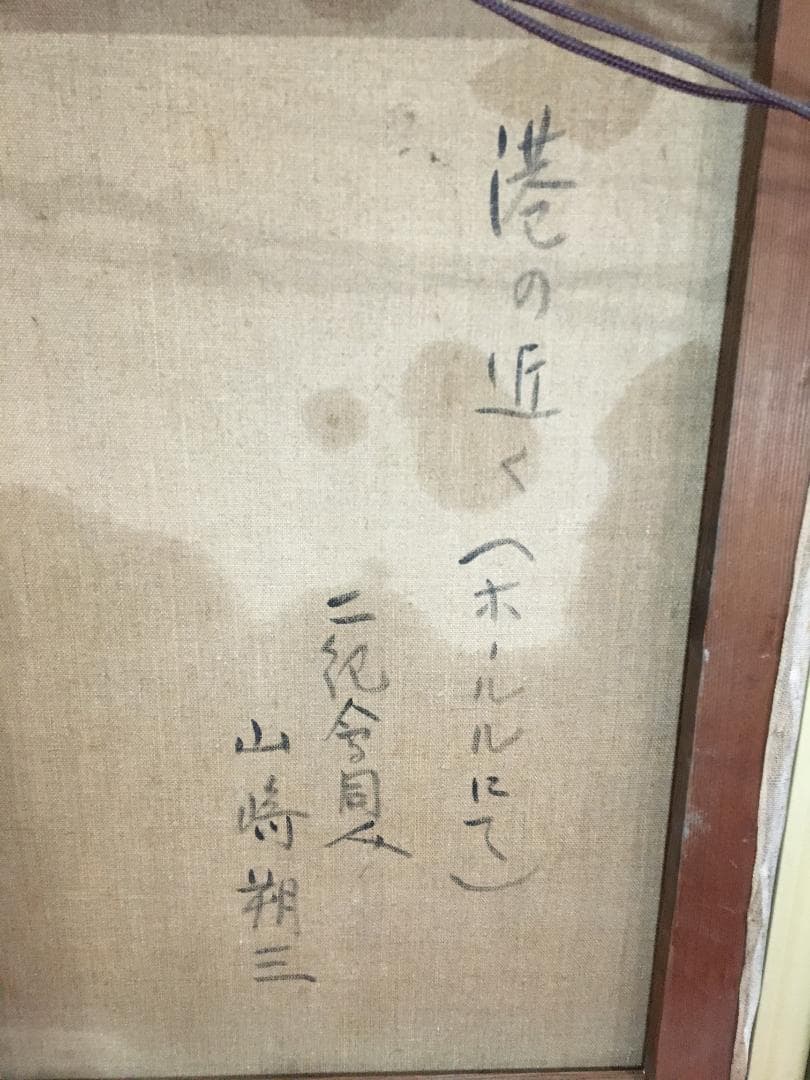 港の近く(ホールルにて)
二紀会同人
山崎朔三